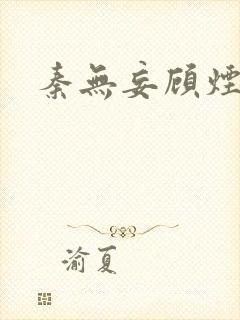 秦無妄顾煙
渝夏